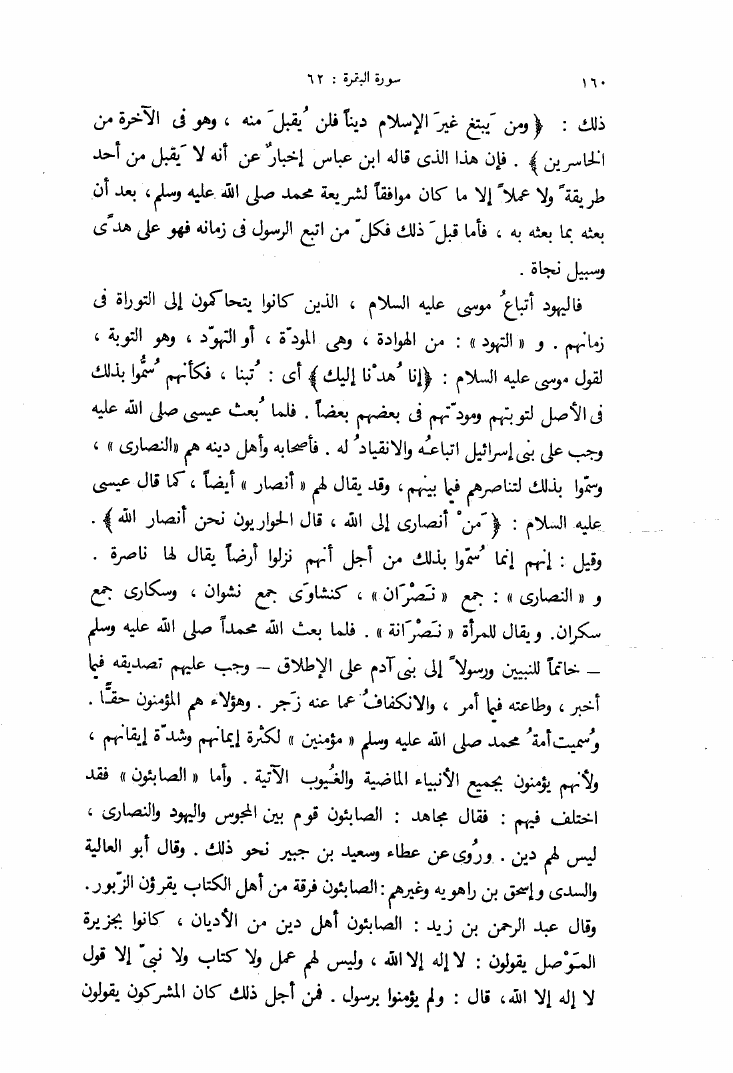 ١٦٠
سورة البقرة : ٦٢
ذلك : ﴿ ومن يَبتغ غيرَ الإسلام ديناً فلن يُقبلَ منه ، وهو فى الآخرة من
الخاسرين ﴾ . فإن هذا الذى قاله ابن عباس إخبارٌ عن أنه لا يَقبل من أحد
طريقةً ولا عملاً إلا ما كان موافقاً لشريعة محمد صلى الله عليه وسلم، بعد أن
بعثه بما بعثه به ، فأما قبلَ ذلك فكلّ من اتبع الرسول فى زمانه فهو على هدًى
وسبيل نجاة .
فاليهود أتباعُ موسى عليه السلام ، الذين كانوا يتحاكمون إلى التوراة فى
زمانهم . و « التهود » : من الهوادة ، وهى المودّة ، أو التهوّد ، وهو التوبة ،
لقول موسى عليه السلام : ﴿إنا هُدْنا إليك﴾ أى : تُبنا ، فكأنهم سُمُّوا بذلك
فى الأصل لتوبتهم ومودّتهم فى بعضهم بعضاً . فلما بُعث عيسى صلى الله عليه
وجب على بنى إسرائيل اتباعُه والانقيادُ له . فأصحابه وأهل دينه هم «النصارى» ،
وسمّوا بذلك لتناصرهم فيما بينهم، وقد يقال لهم « أنصار » أيضاً ، كما قال عيسى
عليه السلام : ﴿مَنْ أنصارى إلى الله ، قال الحواريون نحن أنصار الله﴾ .
وقيل : إنهم إنما سُمّوا بذلك من أجل أنهم نزلوا أرضاً يقال لها ناصرة .
و « النصارى » : جمع « نَصْرَان » ، كنشاوَى جمع نشوان ، وسكارى جمع
سكران. ويقال للمرأة « نَصْرَانة » . فلما بعث الله محمداً صلى الله عليه وسلم
– خاتماً للنبيين ورسولاً إلى بنى آدم على الإطلاق – وجب عليهم تصديقه فيما
أخبر ، وطاعته فيما أمر ، والانكفافُ عما عنه زَجر . وهؤلاء هم المؤمنون حقًّا .
وسُميت أمةُ محمد صلى الله عليه وسلم « مؤمنين » لكثرة إيمانهم وشدّة إيقانهم ،
ولأنهم يؤمنون بجميع الأنبياء الماضية والغُيوب الآتية . وأما « الصابئون» فقد
اختلف فيهم : فقال مجاهد : الصابئون قوم بين المجوس واليهود والنصارى ،
ليس لهم دين . ورُوى عن عطاء وسعيد بن جبير نحو ذلك . وقال أبو العالية
والسدى وإسحق بن راهويه وغيرهم: الصابئون فرقة من أهل الكتاب يقرؤن الزّبور.
وقال عبد الرحمن بن زيد : الصابئون أهل دين من الأديان ، كانوا بجزيرة
المَوْصل يقولون : لا إله إلا الله ، وليس لهم عمل ولا كتاب ولا نبىّ إلا قول
لا إله إلا الله، قال : ولم يؤمنوا برسول . فمن أجل ذلك كان المشركون يقولون